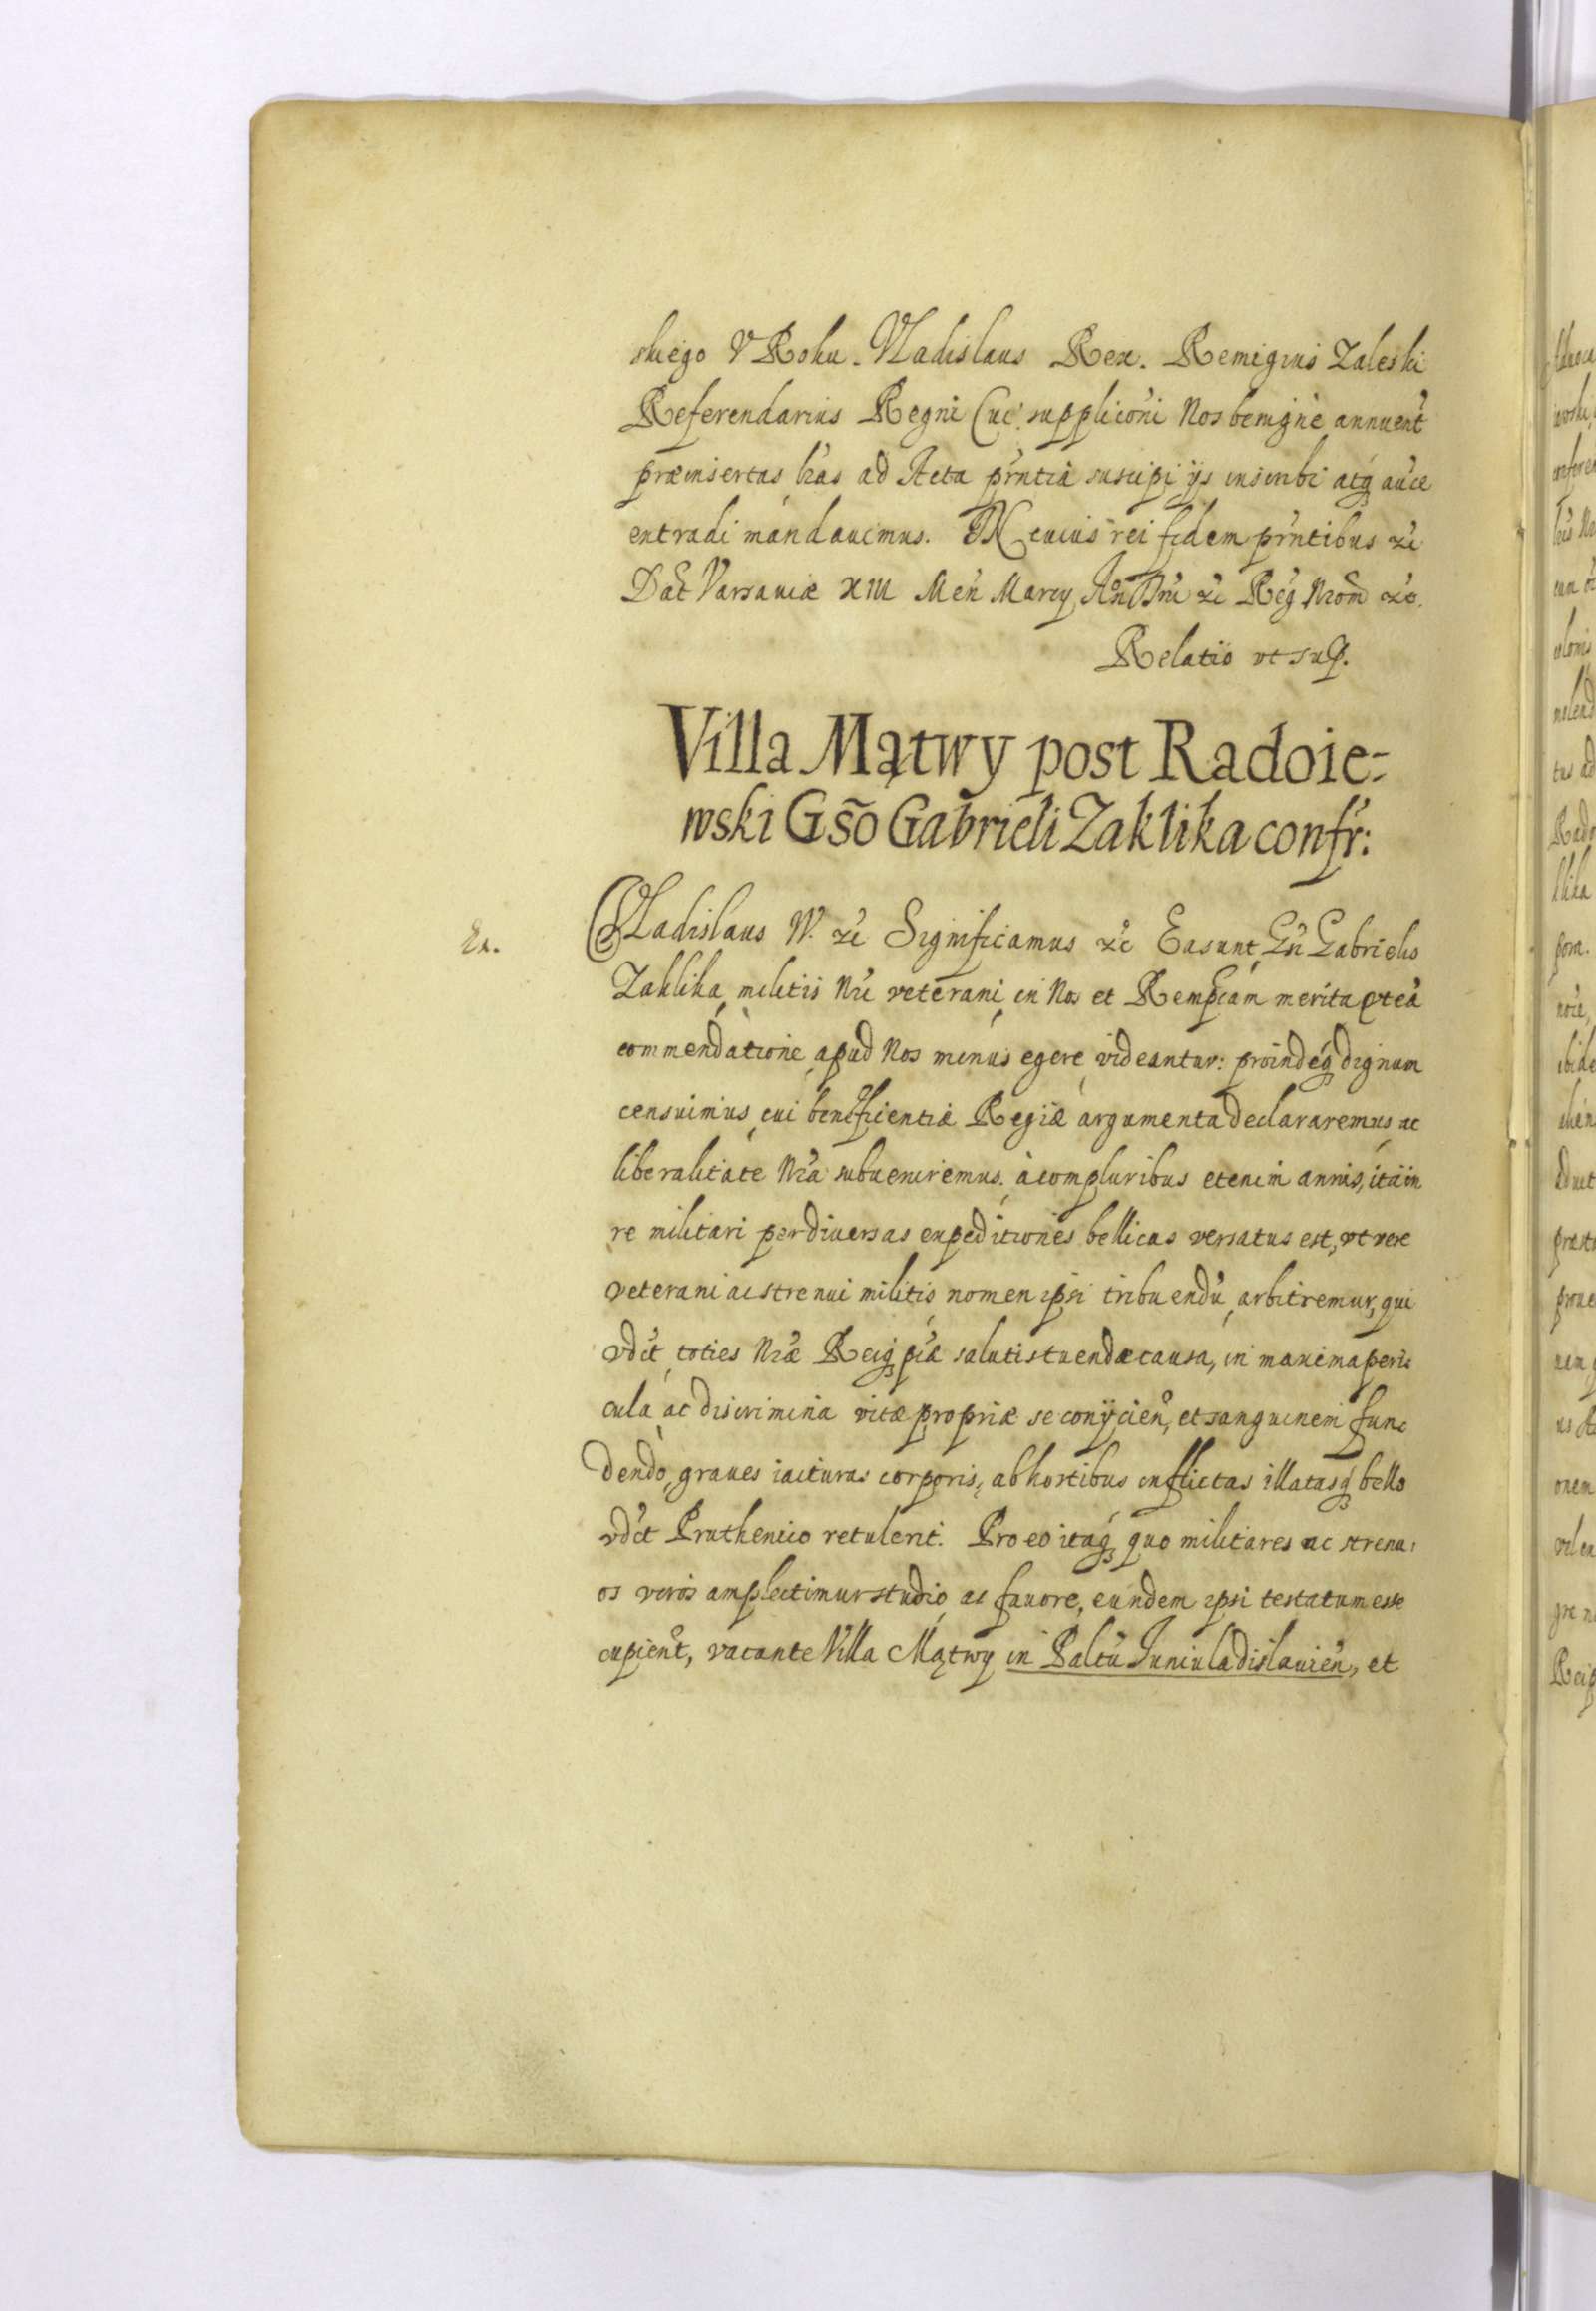 skiego V Roku. Vladislaus Rex. Remigius Zaleski
Referendarius Regni Cui supplicõni Nos benigne annuent̃
præinsertas lr̃as ad Acta pr̃ntia suscipi ijs inscribi atq̃ auce
extradi mandauimus. IN cuius rei fidem pr̃ntibus &c̃
Dat̃ Varsauiæ XIII Men̄ Marcij An̄ Dn̄i &c̃ Reg̃ Nr̃or̃ &c̃.
Relatio vt sup.
Villa Mątwy post Radoie-
wski Gs̃o Gabrieli Zaklika confr̃:
Ex.
Vladislaus IV. &c̃ Significamus &c̃ Ea sunt Gs̃i Gabrielis
Zaklika militis Nr̃i veterani in Nos et Rempcam merita vt eã
commendatione apud Nos minus egere videantur: proindeq̃ dignum
censuimus cui beneficientiæ Regiæ argumenta declararemus ac
liberalitate Nr̃a subueniremus. à compluribus etenim annis, ita in
re militari per diuersas expeditiones bellicas versatus est, vt vere
veterani ac strenui militis nomen ipsi tribuendũ arbitremur, qui
vdc̃t toties Nr̃æ Reiq̃ pc̃æ salutis tuendæ causa, in maxima peri-
cula ac discrimina vitæ propriæ se conijcien̄, et sanguinem fun-
dendo, graues iacturas corporis, ab hostibus inflictas illatasq̃ bello
vdc̃t Pruthenico retulerit. Pro eo itaq̃ quo militares ac strenu-
os viros amplectimur studio ac fauore, eundem ipsi testatum esse
cupient̃, vacante Villa Mątwy in Paltũ Iuniuladislauien̄, et